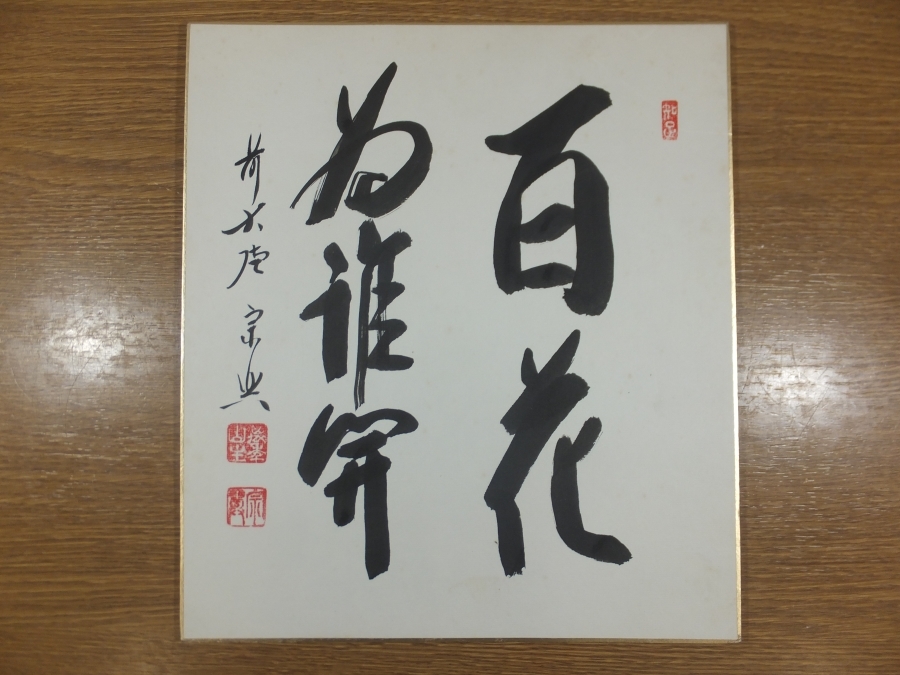 百花
為誰開
前大徳 宗興